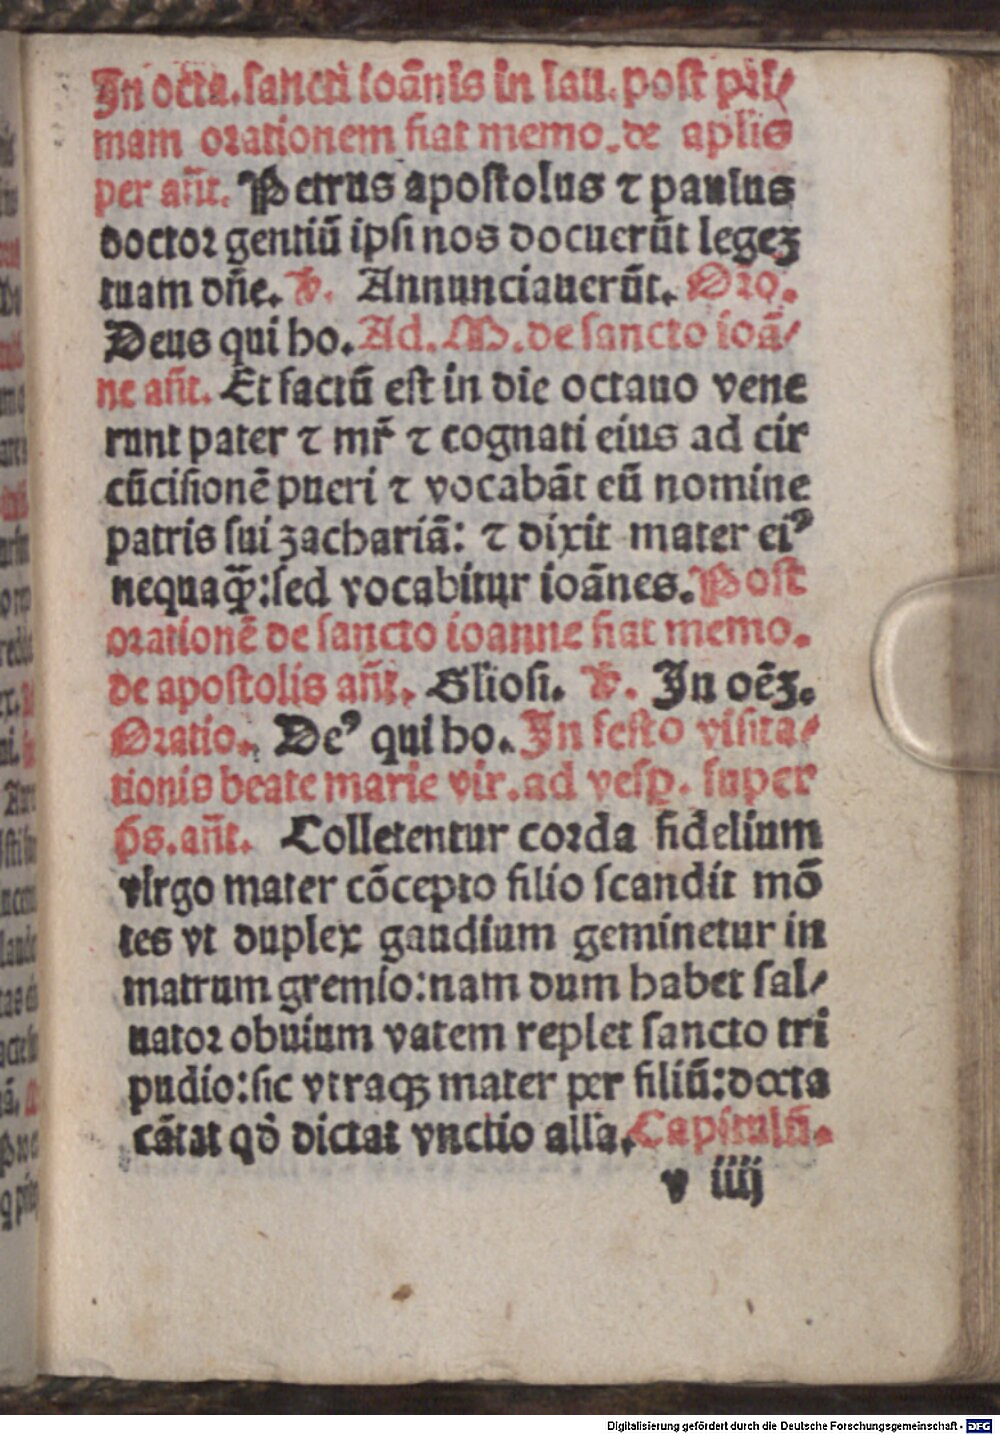 In octa. sancti ioānis in lau. post pri/
mam orationem fiat memo. de aplis
per añt. Petrus apostolus ⁊ paulus
doctor gentiū ipsi nos docuerūt legeꝫ
tuam dñe. ℣. Annunciauerūt. Oro.
Deus qui ho. Ad. M. de sancto ioā/
ne añt. Et factū est in die octauo vene
runt pater ⁊ mr̄ ⁊ cognati eius ad cir
cūcisionē pueri ⁊ vocabāt eū nomine
patris sui zachariā: ⁊ dixit mater eiꝰ
nequaꝙ̄: sed vocabitur ioānes. Post
orationē de sancto ioanne fiat memo.
de apostolis añt. Gliosi. ℣. In oēꝫ.
Oratio. Deꝰ qui ho. In festo visita/
tionis beate marie vir. ad vesp. super
ps. añt. Colletentur corda fidelium
virgo mater cōcepto filio scandit mō
tes vt duplex gaudium geminetur in
matrum gremio: nam dum habet sal/
uator obuium vatem replet sancto tri
pudio: sic vtraqꝫ mater per filiū: docta
cātat qd̄ dictat vnctio alla. Capitulū.
v iiij
Digitalisierung gefördert durch die Deutsche Forschungsgemeinschaft - DFG